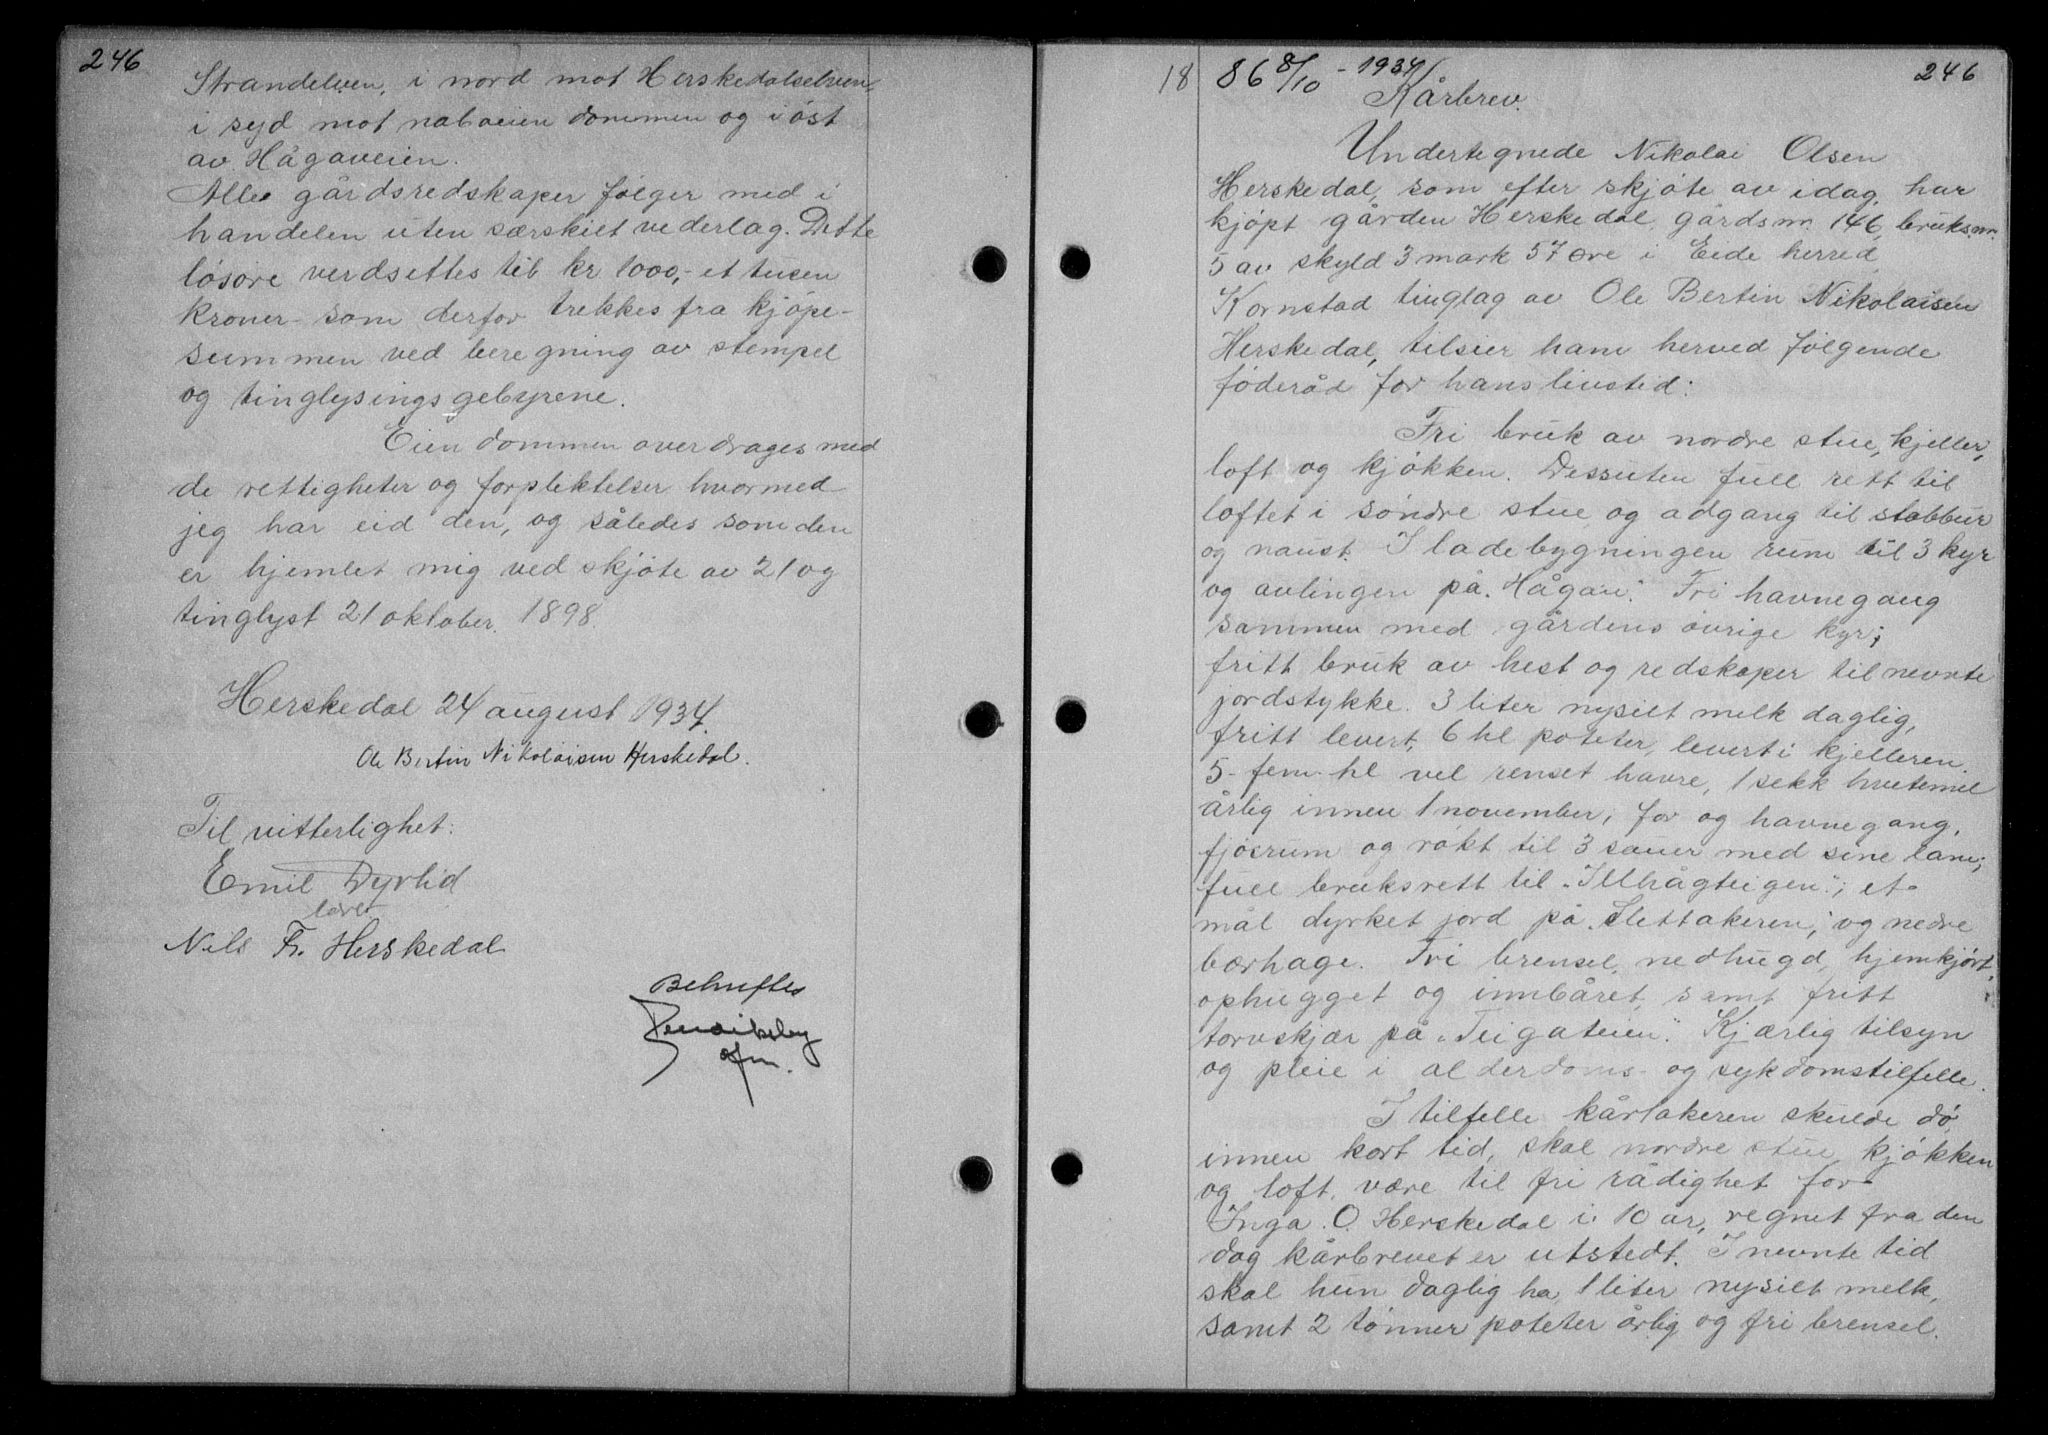 246
Strandelven, i nord mot Herskedalselven,
i syd mot nabœiendommen og i øst
av Hågaveien.
Alle gårdsredskaper følger med i
handelen uten særskilt vederlag. Dette
løsøre verdsettes til kr 1000,- et tusen
kroner - som derfor trekkes fra kjøpe-
summen ved beregning av stempel
og tinglysingsgebyrene.
Eiendommen overdrages med
de rettigheter og forpliktelser hvormed
jeg har eid den, og således som den
er hjemlet mig ved skjøte av 21 og
tinglyst 21 oktober 1898.
Herskedal 24 august 1934.
Ole Bertin Nikolaisen Herskedal.
Til vitterlighet:
Emil Dyrlid
lærer
Nils Fr. Herskedal
Bekreftes
ofm.
18
86 8/10 - 1934
246
Kårbrev.
Undertegnede Nikolai Olsen
Herskedal, som efter skjøte av idag, har
kjøpt gården Herskedal gårdsnr. 146, bruksnr.
5 av skyld 3 mark 57 øre i Eide herred
Kornstad tinglag av Ole Bertin Nikolaisen
Herskedal, tilsier ham herved følgende
føderåd for hans livstid:
Fri bruk av nordre stue, kjeller,
loft og kjøkken. Dessuten full rett til
loftet i søndre stue og adgang til stabbur
og naust. I ladebygningen rum til 3 kyr
og avlingen på "Hågan". Fri havnegang
sammen med gårdens øvrige kyr;
fritt bruk av hest og redskaper til nevnte
jordstykke. 3 liter nysilt melk daglig,
fritt levert, 6 hl poteter, levert i kjelleren.
5 - fem - hl vel renset havre, 1 sekk hvetemel
årlig innen 1 november, for og havnegang,
fjøsrum og røkt til 3 sauer med sine lam;
full bruksrett til "Illhågteigen"; et
mål dyrket jord på "Slettakeren", og nedre
bærhage. Fri brensel, nedhugd, hjemkjørt,
ophugget og innbåret, samt fritt
torvskjær på "Teigateien". Kjærlig tilsyn
og pleie i alderdoms- og sykdomstilfelle.
I tilfelle kårtakeren skulde dø
innen kort tid, skal nordre stue, kjøkken
og loft, være til fri rådighet for
Inga O. Herskedal i 10 år, regnet fra den
dag kårbrevet er utstedt. I nevnte tid
skal hun daglig ha 1 liter nysilt melk,
samt 2 tønner poteter årlig og fri brensel.